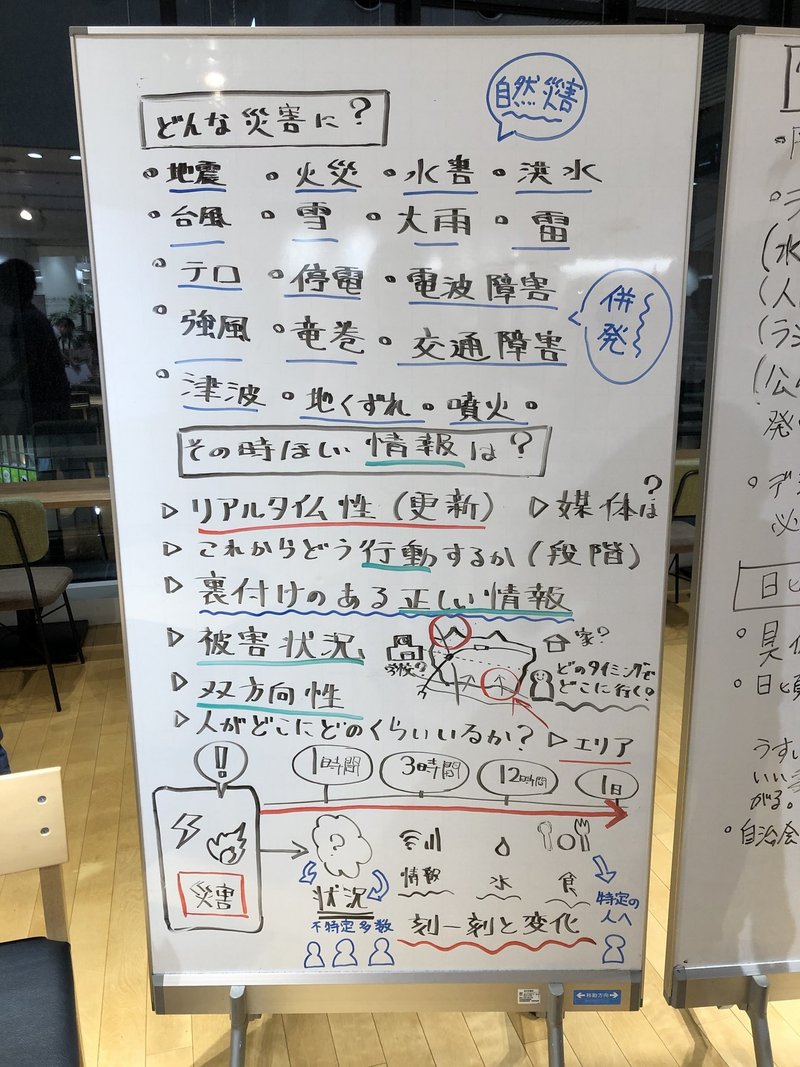 自然災害
どんな災害に?
・地震 ・火災 ・水害 ・洪水
・台風 ・雪 ・大雨 ・雷
・テロ ・停電 ・電波障害
併発
・強風 ・竜巻 ・交通障害
・津波 ・地くずれ ・噴火 ・
その時ほしい情報は?
▷リアルタイム性(更新) ▷媒体は?
▷これからどう行動するか(段階)
▷裏付けのある正しい情報
▷被害状況
学校?
家?
どのタイミングで
どこに行く?
▷双方向性
▷人がどこにどのくらいいるか? ▷エリア
!
1時間 3時間 12時間 1日
?
災害
状況
情報 水 食
不特定多数
刻一刻と変化
特定の
人へ
←移動方向→
(水
(人
(ラジ
(公
発
・デ
必
日
・具
・日頃
うすい
いい
がる。
・自治会